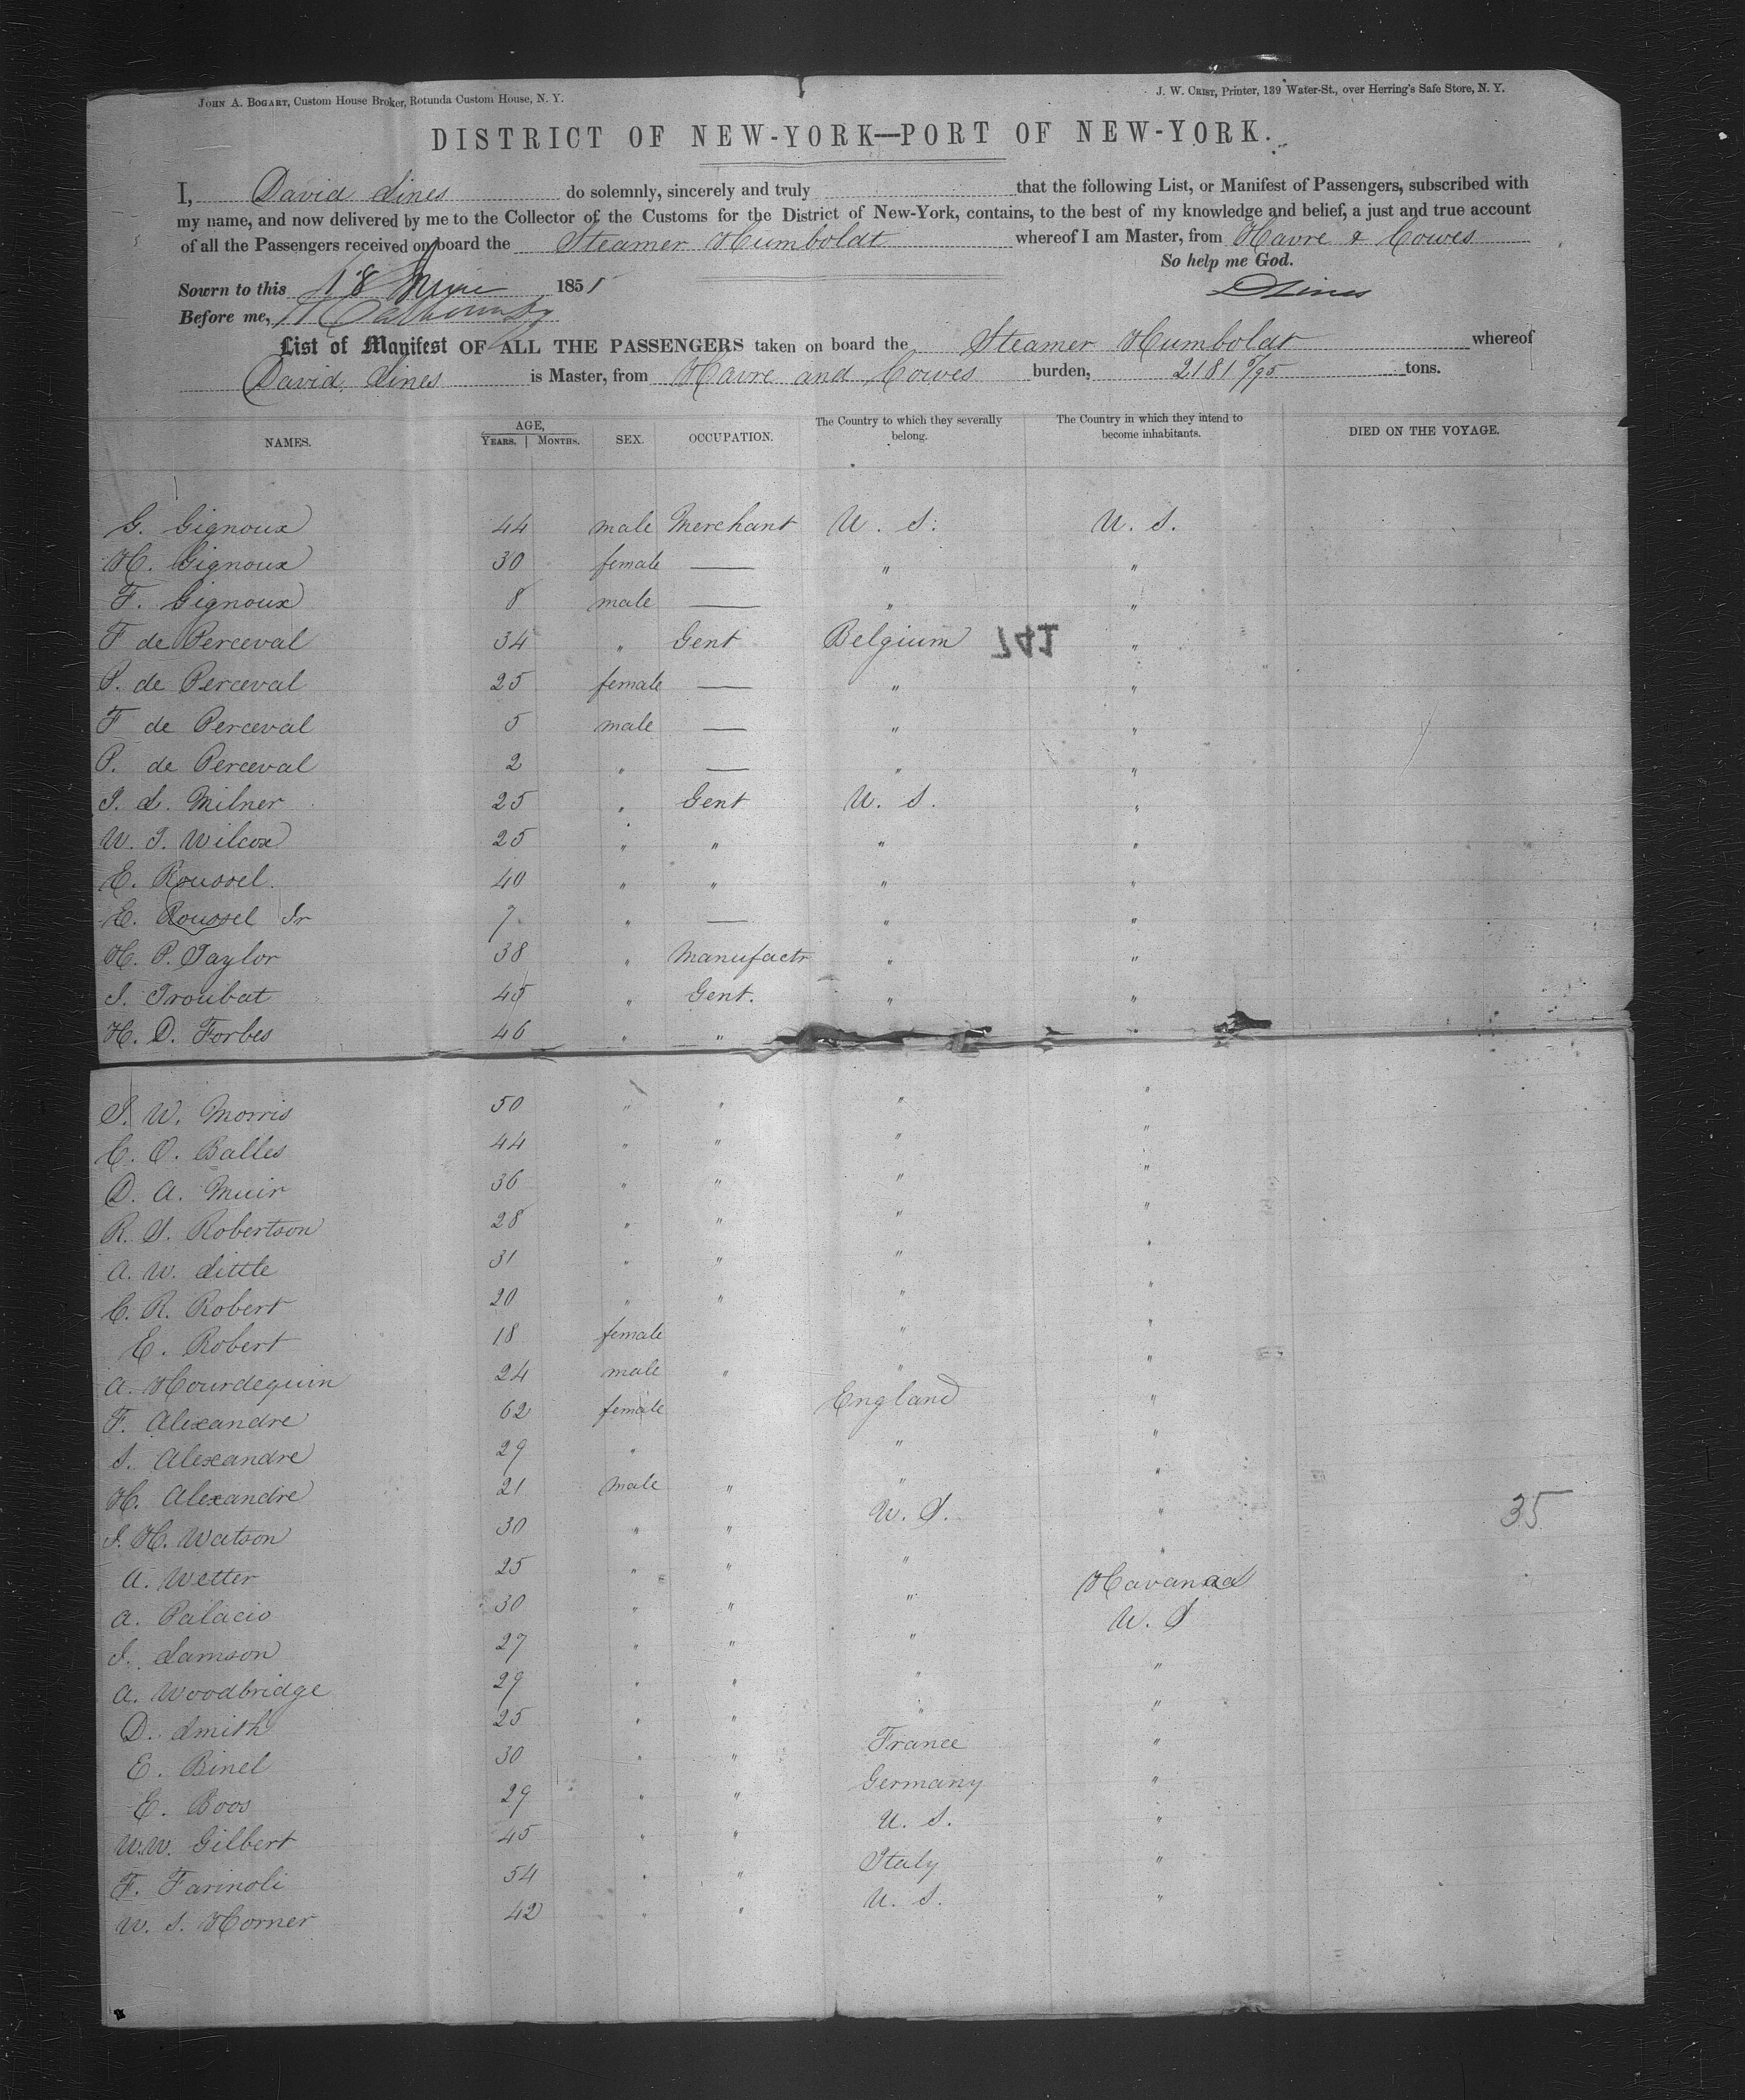 JOHN A. BOGART, Custom House Broker, Rotunda Custom House, N. Y. J. W. CRIST, Printer, 139 Water-St., over Herring's Safe Store, N. Y.
DISTRICT OF NEW-YORK—PORT OF NEW-YORK.
I, David Lines do solemnly, sincerely and truly that the following List, or Manifest of Passengers, subscribed with
my name, and now delivered by me to the Collector of the Customs for the District of New-York, contains, to the best of my knowledge and belief, a just and true account
of all the Passengers received on board the Steamer Humboldt whereof I am Master, from Havre & Cowes
So help me God.
Sowrn to this 18 June 1851 D Lines
Before me,
List of Manifest OF ALL THE PASSENGERS taken on board the Steamer Humboldt whereof
David Lines is Master, from Havre and Cowes burden, 2181 5/95 tons.
NAMES. AGE, YEARS. MONTHS. SEX. OCCUPATION. The Country to which they severally belong. The Country in which they intend to become inhabitants. DIED ON THE VOYAGE.
G. Gignoux 44 male Merchant U. S. U. S.
H. Gignoux 30 female — " "
F. Gignoux 8 male — " "
F de Perceval 34 " Gent Belgium 741 "
P. de Perceval 25 female — " "
F de Perceval 5 male — " "
P. de Perceval 2 " — " "
J. L. Milner 25 " Gent U. S. "
W. J. Wilcox 25 " " " "
E. Roussel 40 " " " "
E. Roussel Jr 7 " — " "
H. P. Taylor 38 " Manufactr " "
J. Troubat 45 " Gent. " "
H. D. Forbes 46 " " "
J. W. Morris 50 " " " "
C. O. Balles 44 " " " "
D. A. Muir 36 " " " "
R. S. Robertson 28 " " " "
A. W. Little 31 " " " "
C. R. Robert 20 " " " "
E. Robert 18 female " "
A. Hourdequin 24 male " " "
F. Alexandre 62 female England "
S. Alexandre 29 " " "
H. Alexandre 21 male " " "
J. H. Watson 30 " " U. S. " 35
A. Wetter 25 " " " "
A. Palacio 30 " " " Havanaa
J. Lamson 27 " " " U. S
A. Woodbridge 29 " " " "
D. Smith 25 " " " "
E. Binel 30 " " France "
E. Boos 29 " " Germany "
W.W. Gilbert 45 " " U. S. "
F. Farinoli 54 " " Italy "
W. S. Horner 42 " " U. S. "